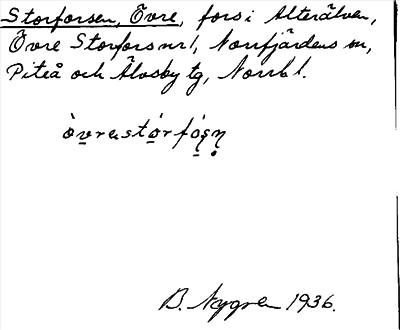 Storforsen, Övre, fors i Alterälven,
Övre Storfors nr 1, Norrfjärdens sn,
Piteå och Älvsby tg, Norrb l.
B. Nygren 1936.